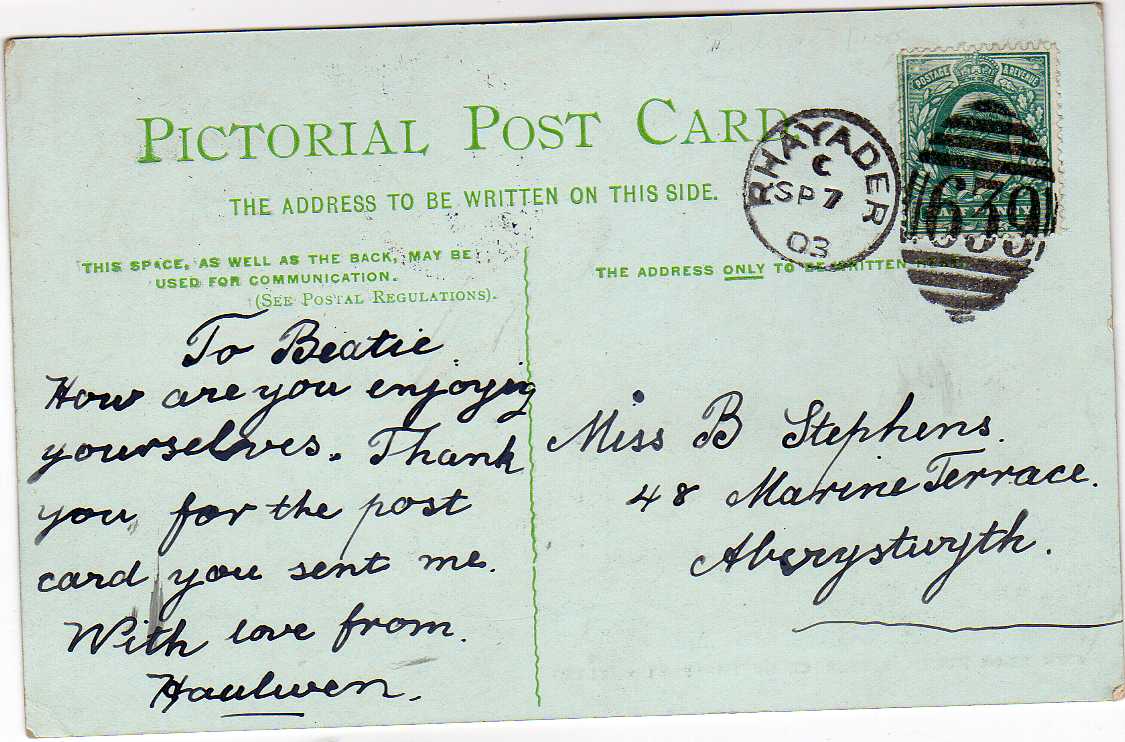 PICTORIAL POST CARD
THE ADDRESS TO BE WRITTEN ON THIS SIDE.
THIS SPACE, AS WELL AS THE BACK, MAY BE
USED FOR COMMUNICATION.
(SEE POSTAL REGULATIONS).
To Beatie.
How are you enjoying
yourselves. Thank
you for the post
card you sent me.
With love from.
Haulwen.
POSTAGE & REVENUE
RHAYADER
C
SP 7
03
639
THE ADDRESS ONLY TO BE WRITTEN
Miss B Stephens.
48 Marine Terrace.
Aberystwyth.